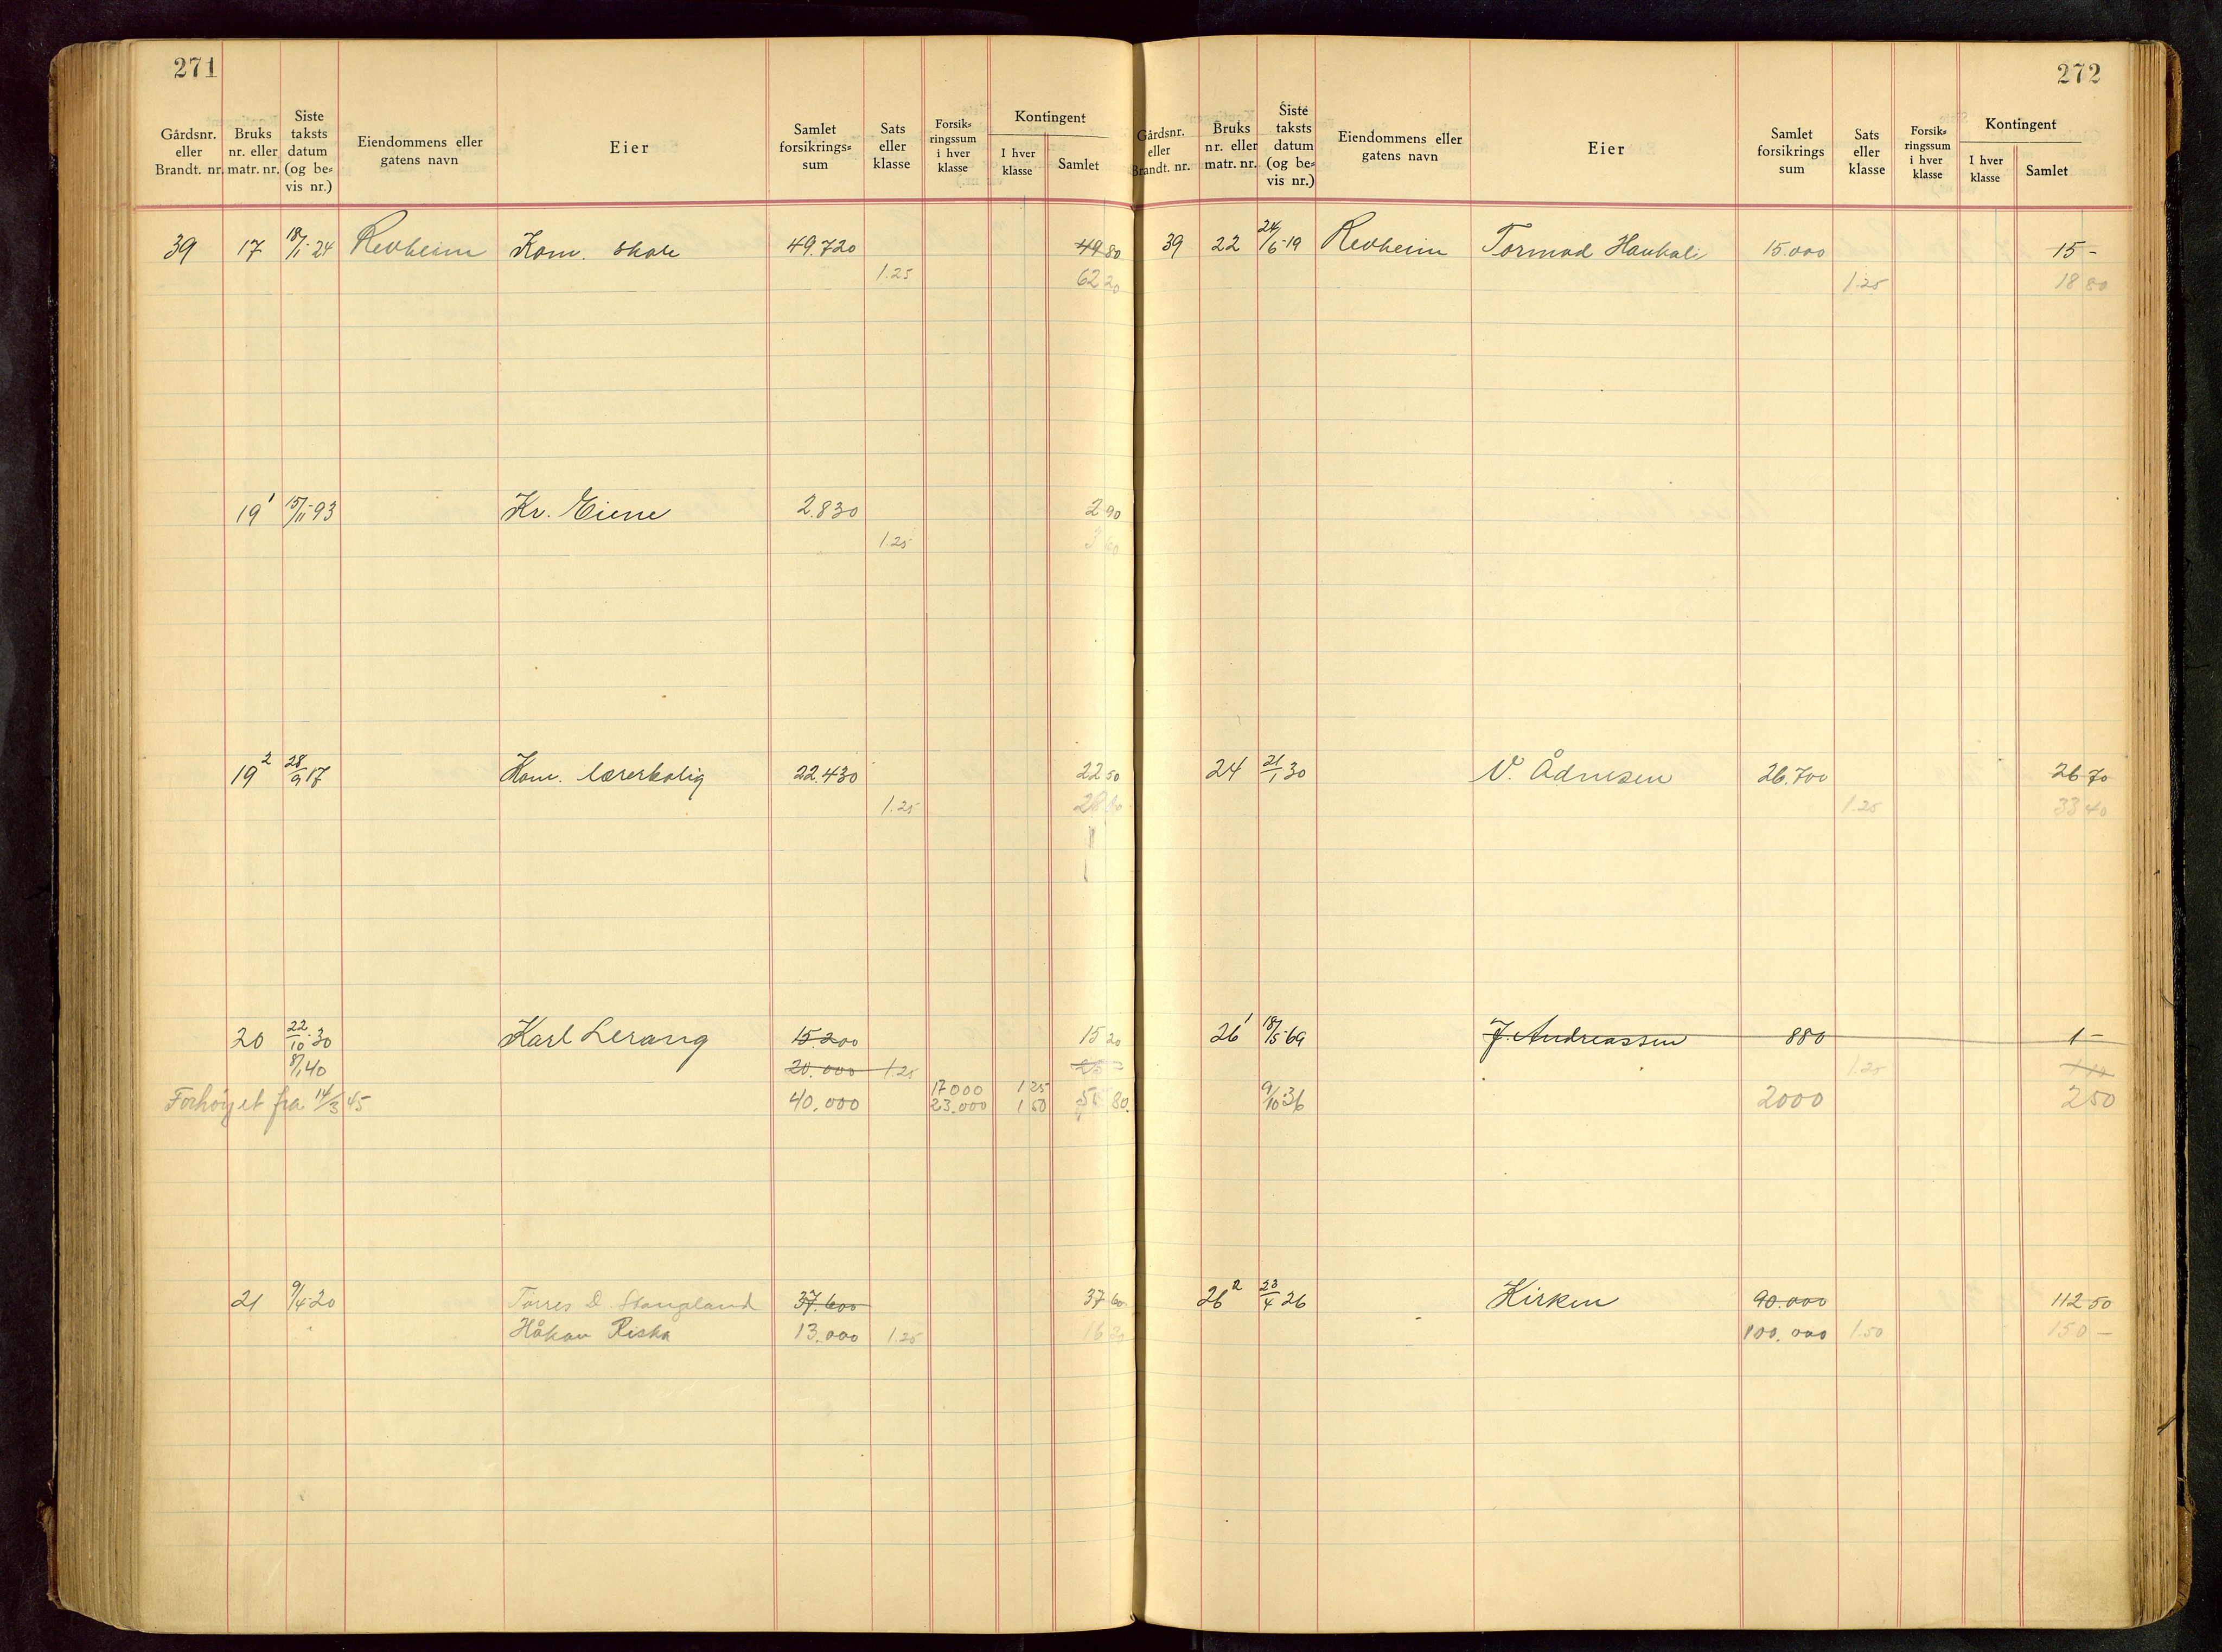 271
Gårdsnr. eller Brandt. nr. Bruks nr. eller matr. nr. Siste taksts datum (og be= vis nr.) Eiendommens eller gatens navn Eier Samlet forsikrings= sum Sats eller klasse Forsik= ringssum i hver klasse Kontingent I hver klasse Samlet
39 17 18/1-24 Revheim Kom. skole 49.720 49 80
1.25 62 20
19¹ 15/11-93 Kr. Eiene 2.830 2 90
1.25 3 60
19² 28/9 17 Kom. lærerbolig 22.430 22 50
1.25
20 22/10-30 Karl Lerang 15.200 15 20
8/1 40 20.000 1.25 25 -
17000 1 25
Forhøyet fra 14/3 45 40.000 23.000 1 50 80.
21 9/4-20 Torres D. Stangland 37.600 37 60
Håkon Riska 13.000 1.25 16 30
272
Gårdsnr. eller Brandt. nr. Bruks nr. eller matr. nr. Siste taksts datum (og be= vis nr.) Eiendommens eller gatens navn Eier Samlet forsikrings sum Sats eller klasse Forsik= ringssum i hver klasse Kontingent I hver klasse Samlet
39 22 24/6-19 Revheim Tormod Haukali 15.000 15 -
1.25 18 80
24 21/1 30 V. Ådnesen 26.700 26 70
1.25 33 40
26¹ 18/5-69 J. Andreassen 880 1 -
1.25 1 10
9/10-36 2000 2 50
26² 23/4 26 Kirken 90.000 112 50
100.000 1.50 150 -